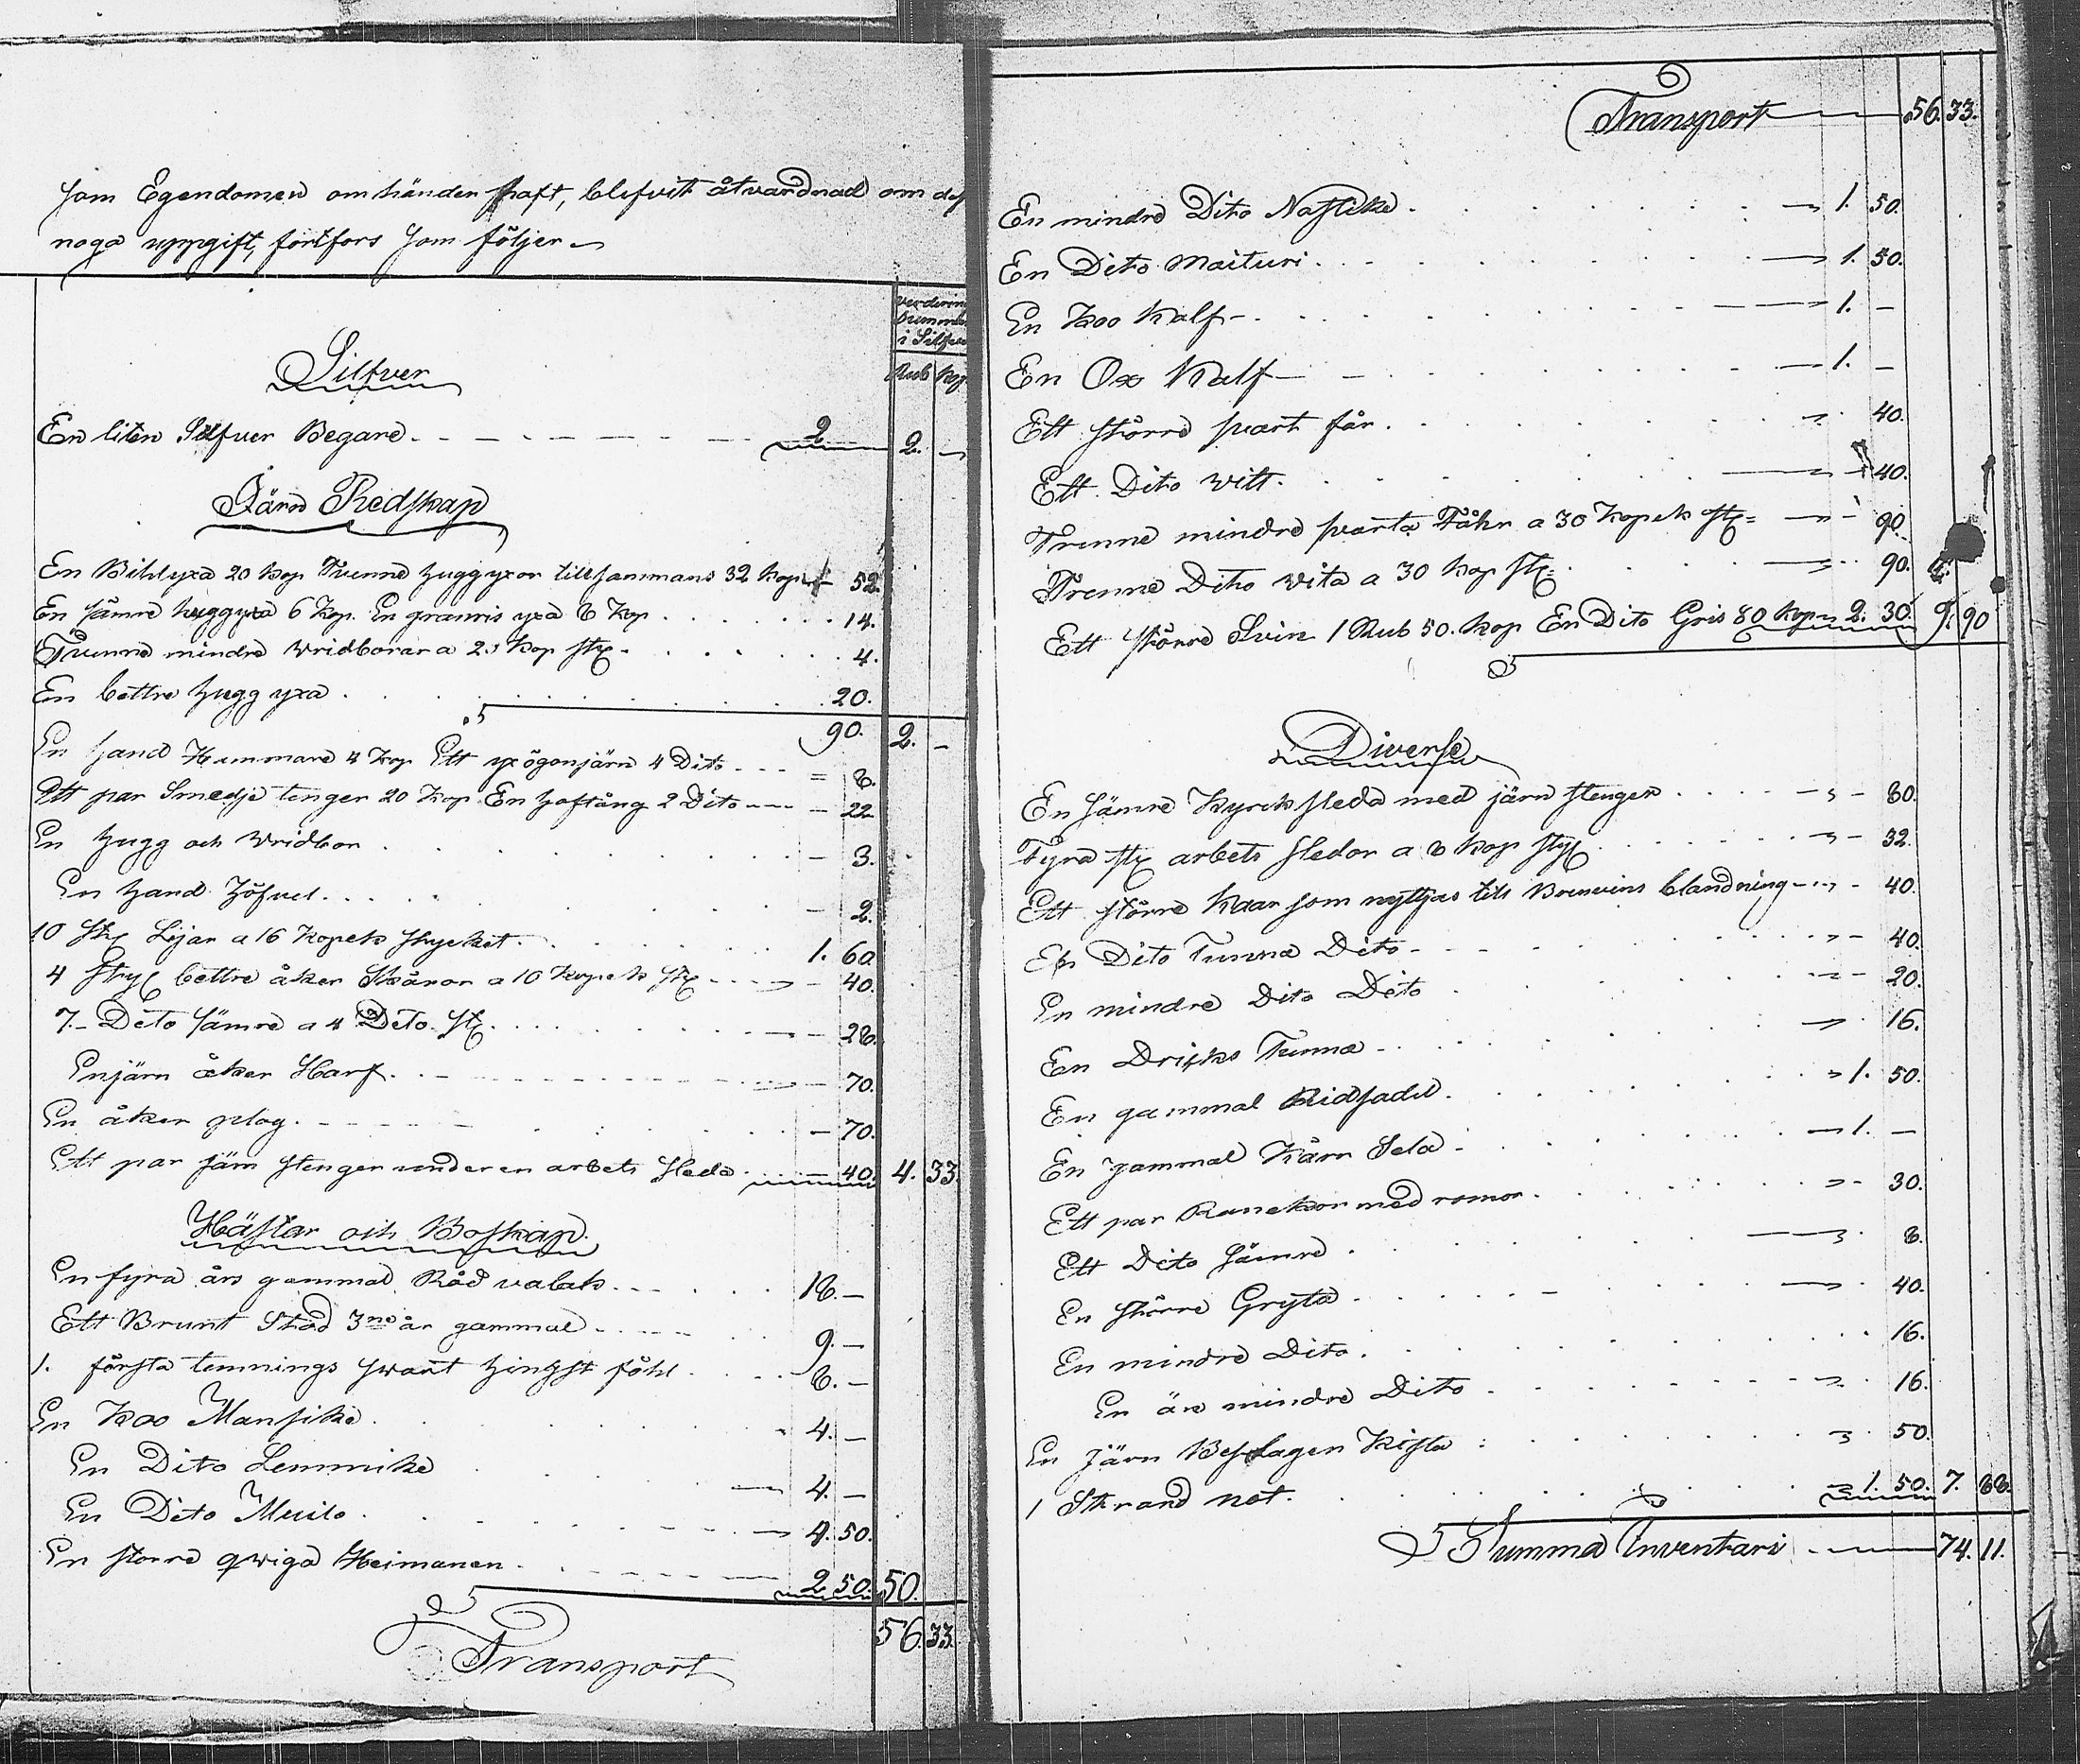 som Egendomen om händer haft, blefvit åtvarnad om des
noga uppgift, fortfors som följer
verderin
summa
i Silfver
Rub Kop
Silfver
En liten Silfver Begare 2 2. –
Järn Redskap
En Bihlyxa 20 kop Tvenne huggyxor tillsammans 32 kop 52.
En sämre huggyxa 6 Kop. En granris yxa 8 Kop 14.
Tvenne mindre vridborar a 2 kop st 4.
En bettre huggyxa 20.
90. 2. –
En hand Hammare 4 kop Ett yxögonjärn 4 Dito 8.
Ett par Smedje tenger 20 kop En Hoftång 2 Dito 22
En hugg och vridbor 3.
En hand Höfvel 2.
10 st Lijar a 16 kopek stycket 1. 60
4 sty bettre åker Skäror a 10 kopek st 40.
7. Dito sämre a 4 Dito st 28.
En järn åker Harf 70.
En åker plog 70.
Ett par järn stenger under en arbets släda 40. 4. 33
Hästar och Boskap
En fyra års gammal Röd valak 18. –
Ett Brunt Stod 3ne år gammal 9. –
1. första temnings swart hingst föhl 8. –
En Koo Mansike 4. –
En Dito Lemmike 4. –
En Dito Muilo 4. 50.
En storre qwiga Heimanen 2 50. 50.
Transport 56. 33.
Transport 56. 33.
En mindre Dito Nastike 1. 50.
En Dito Maituri 1. 50.
En Koo Kalf 1. –
En Ox Kalf 1. –
Ett större svart får 40.
Ett Dito witt 40.
Trenne mindre svarta Fåhr a 30 kopek st 90
Trenne Dito vita a 30 kop st 90.
Ett större Svin 1 Rub 50. kop En Dito Gris 80 kop 2. 30. 9. 90
Diverse
En sämre Kyrck släda med järn stenger 80.
Fyra st arbets slädor a 8 kop sty 32.
Ett större Kaar som nyttjas till Brenvins blandning 40.
En Dito Tunna Dito 40.
En mindre Dito Dito 20.
En Dricks Tunna 16.
En gammal Ridsadel 1. 50.
En gammal Kärr Sela 1. –
Ett par Ranckor med remor 30.
Ett Dito sämre 8.
En större Gryta 40.
En mindre Dito 16.
En än mindre Dito 16.
En Järn Beslagen Kista 50.
1 Strand not 1. 50. 7. 88.
Summa Inventari 74. 11.